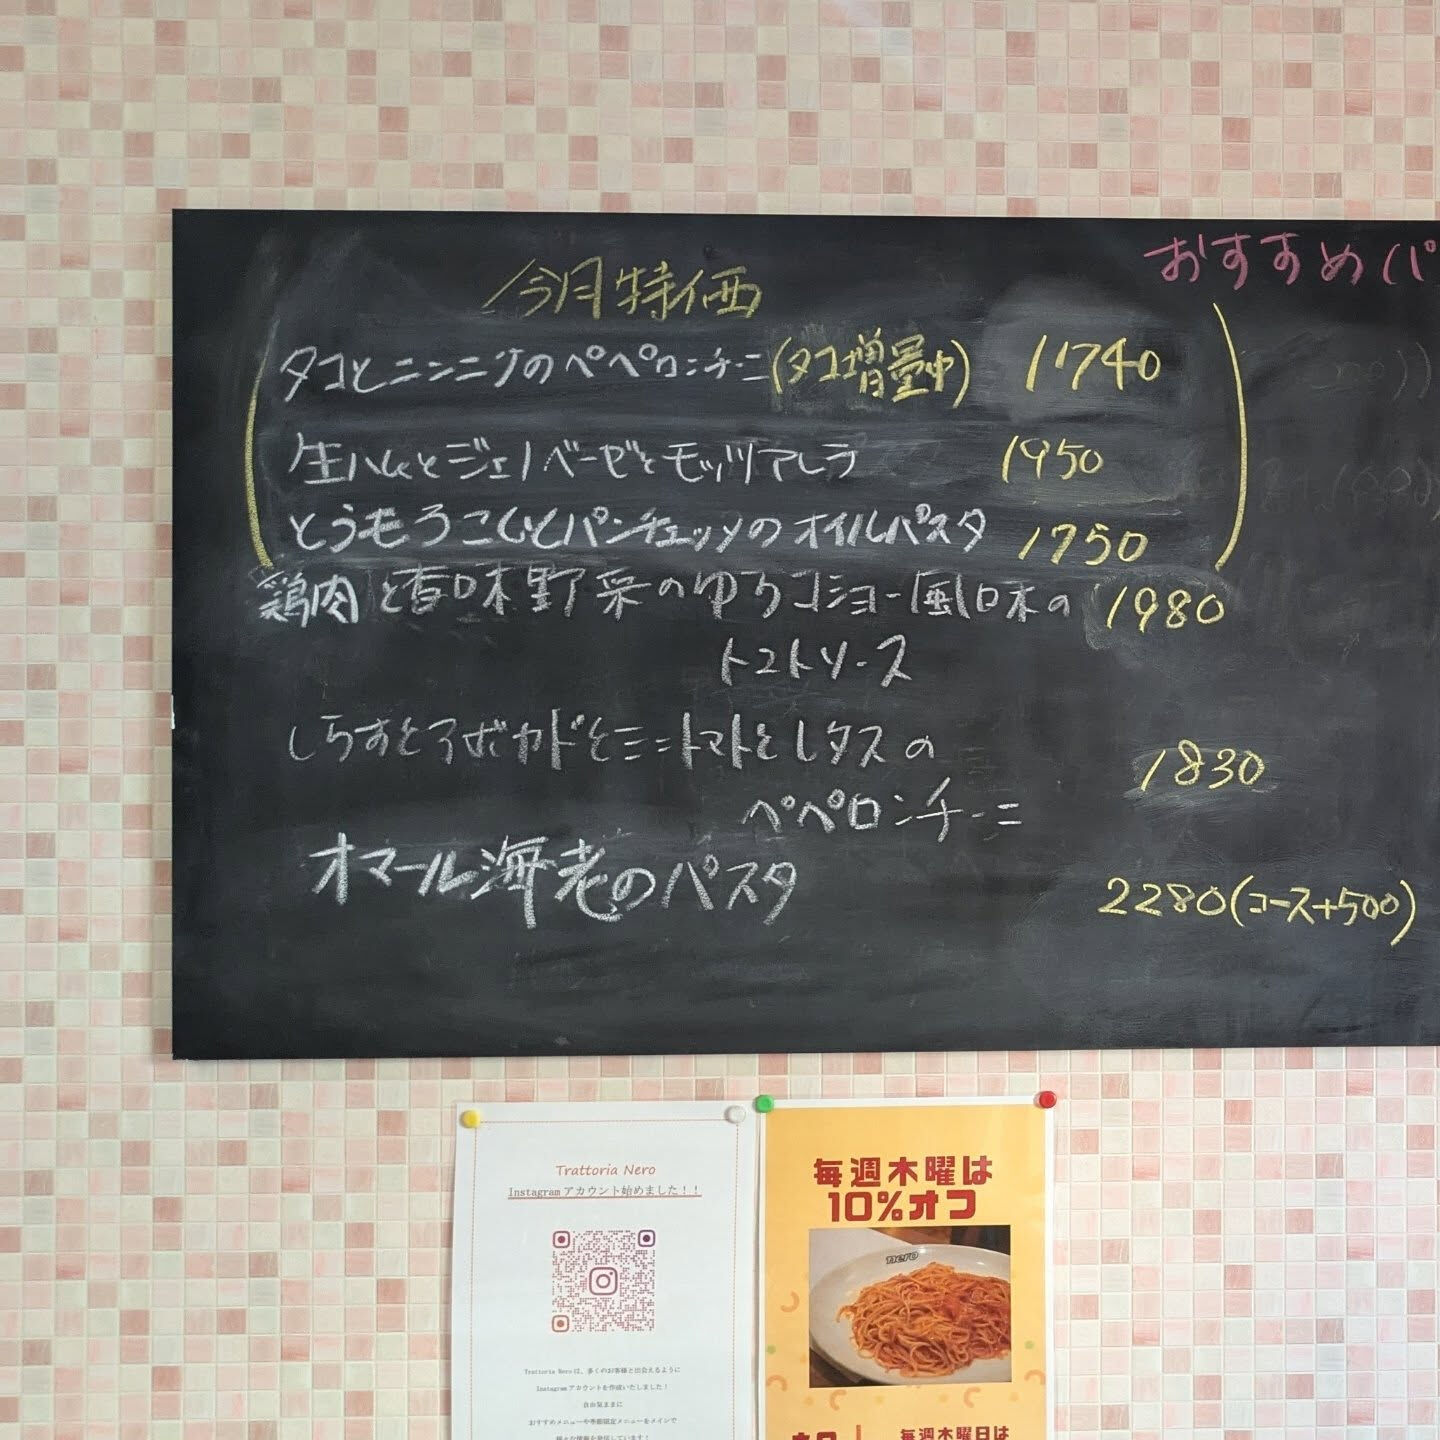 おすすめパ
今月特価
タコとニンニクのペペロンチーニ(タコ増量中) 1740
生ハムとジェノベーゼとモッツァレラ 1950
とうもろこしとパンチェッタのオイルパスタ 1750
鶏肉と香味野菜のゆうコショー風味の 1980
トマトソース
しらすとアボカドとミニトマトとレタスの
ペペロンチーニ 1830
オマール海老のパスタ 2280(コース+500)
Trattoria Nero
Instagramアカウント始めました！！
Trattoria Neroは、多くのお客様と出会えるように
Instagramアカウントを作成いたしました！
自由気ままに
おすすめメニューや季節限定メニューをメインで
様々な情報を発信しています！
毎週木曜は
10%オフ
nero
毎週木曜日は